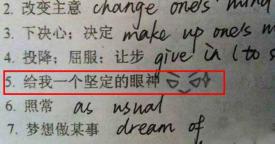 2. 改变主意 change one's mind
3. 下决心；决定 make up one's m
4. 投降；屈服；让步 give in (to s
5. 给我一个坚定的眼神
6. 照常 as usual
7. 梦想做某事 dream of